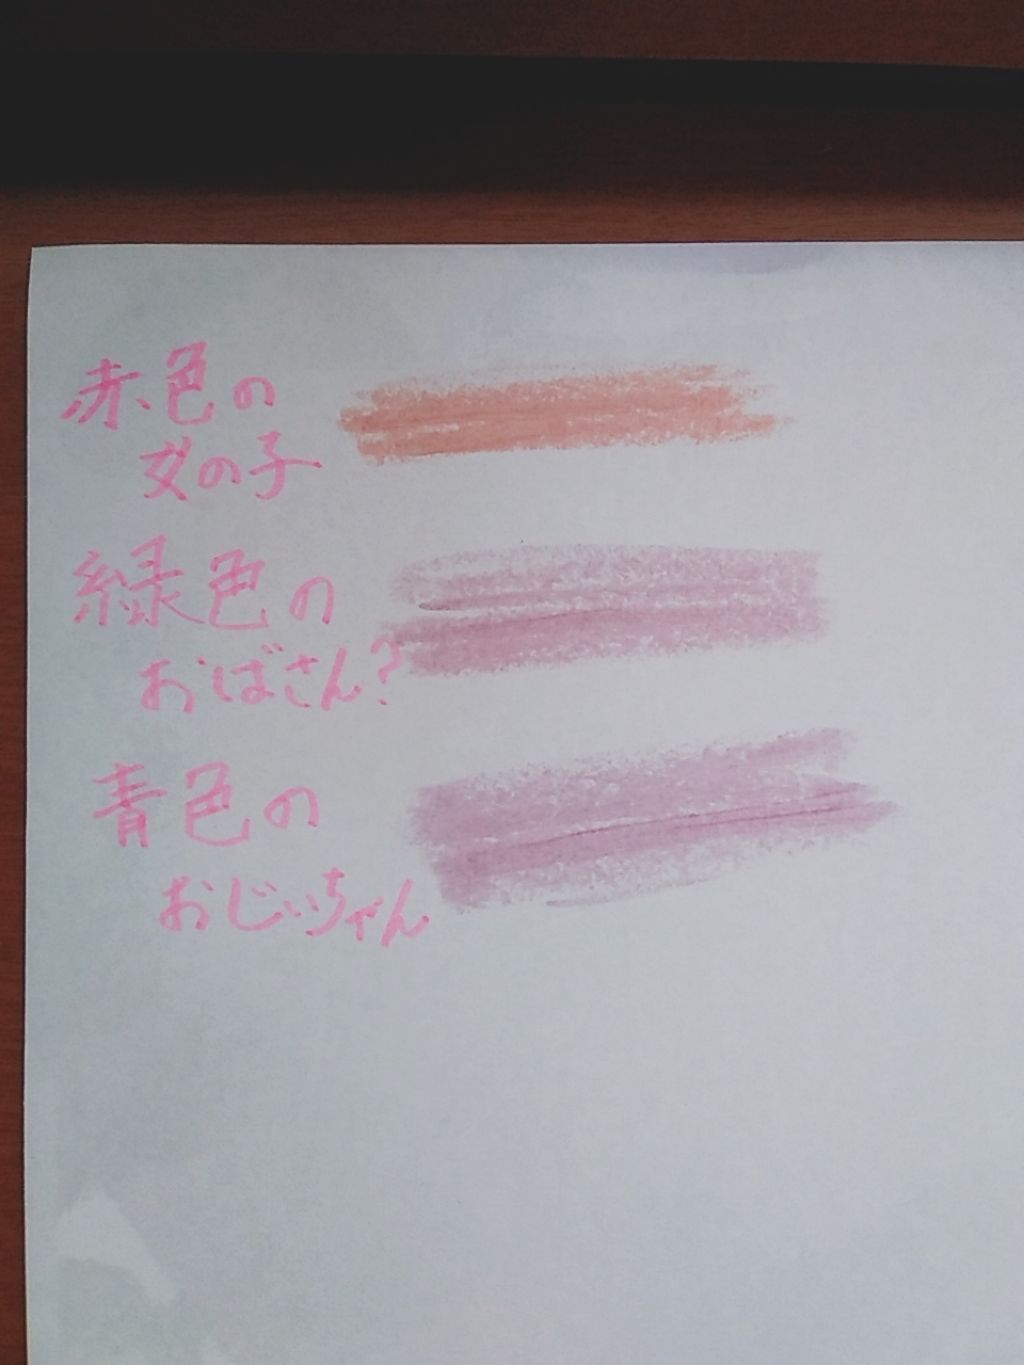 赤色の
女の子
緑色の
おばさん?
青色の
おじいちゃん